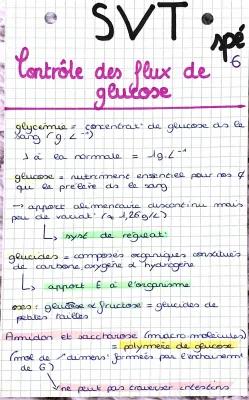 SVT
spé
6
Contrôle des flux de
glucose
glycémie = concentrat° de glucose ds le
sang (g.L⁻¹)
à la normale = 1g.L⁻¹
glucose = nutriment essentiel pour nos ¢
qui le prélève ds le sang
→ apport alimentaire discontinu mais
peu de variat° (≈ 1,26g/L)
↳ syst de régulat°
glucides = composés organiques constitués
de carbone, oxygène & hydrogène
↳ apport E à l'organisme
oses : glucose & fructose = glucides de
petites tailles
Amidon et saccharose (macromolécules)
= polymère de glucose
(mol de dimens° formées par l'enchainemt
de G)
↘ ne peut pas traverser intestins